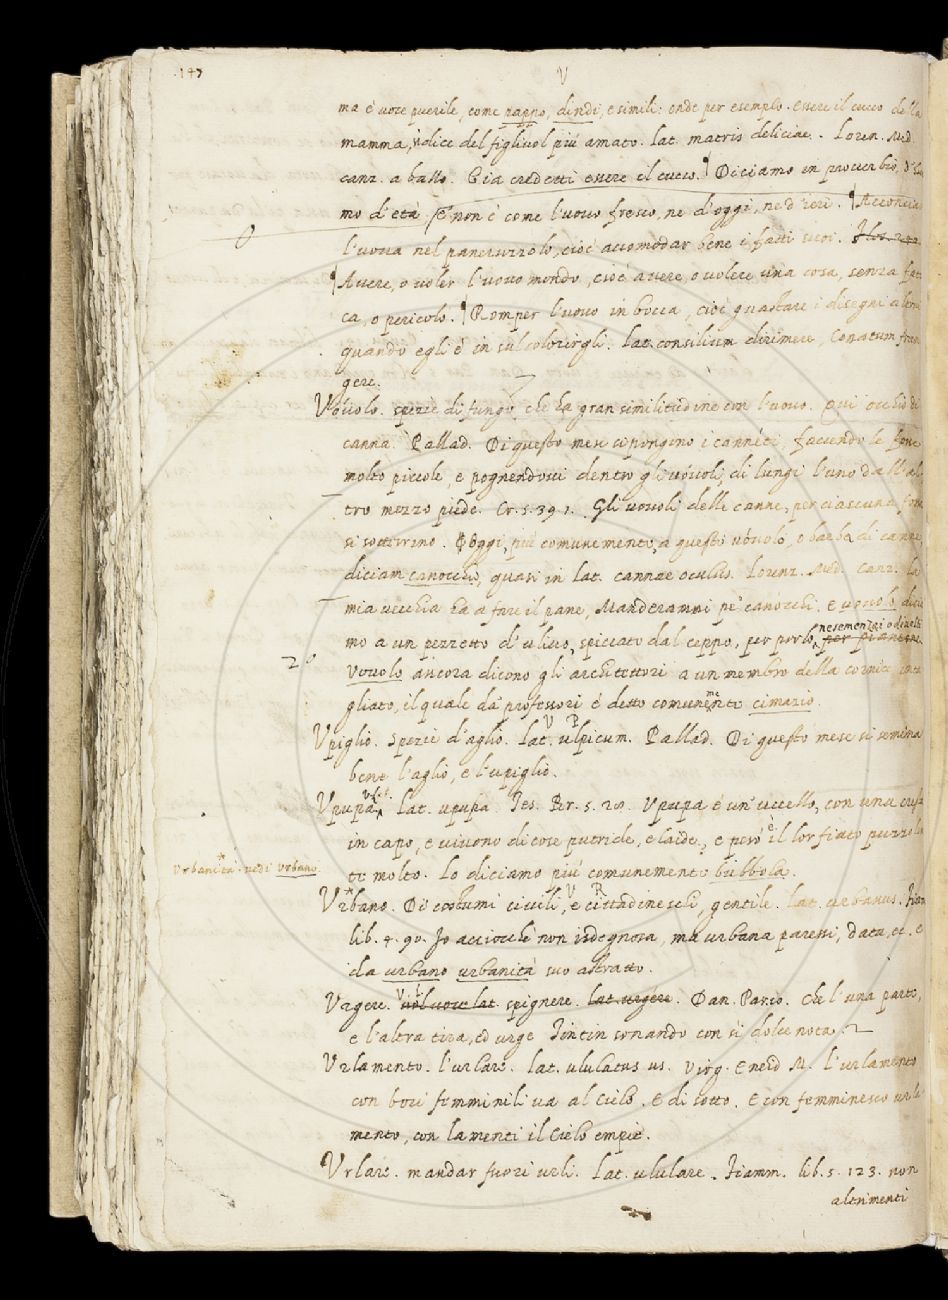 147
V
ma è uoce puerile, come pappo, dindi, e simili: onde per esempio. essere il cucco della
mamma, si dice del figliuol più amato. lat. matris deliciae. Loren. Med.
canz. a ballo. Già credetti essere il cucco. Diciamo in prouerbio,
mo d'età E' non è come l'uouo fresco, ne d'oggi, ne d'ieri. Acconciar
l'uoua nel paneruzzolo, cioè accomodar bene i fatti suoi.
Auere, o uoler l'uouo mondo, cioè auere, o uolere una cosa, senza fati
ca, o pericolo. Romper l'uouo in bocca, cioè guastare i disegni altrui
quando egli è in sul colorirgli. lat. consilium dirimere, Conatum fran
gere.
Vouolo. spezie di fungo che ha gran similitudine con l'uouo. Qui occhio di
canna. Pallad. Di questo mese si pongono i canneti, facendo le fosse
molto piccole, e pognendoui dentro gli uouoli, di lungi l'uno dall'al
tro mezzo piede. Cr. 5. 39. 1. Gli uouoli delle canne, per ciascuna fossa
si sotterrino. Oggi, più comunemente, a questo uóuolo, o barba di canne
diciam canocchio, quasi in lat. cannae oculus. Lorenz. Med. Canz. la
mia uecchia ha a fare il pane, Manderammi pe' canocchi. e uouolo dicia
mo a un pezzetto d'uliuo, spiccato dal ceppo, per porlo ne semenzai o diuelti per piantone
Vouolo ancora dicono gli architettori a un membro della cornice inta
gliato, il quale da' professori è detto comunemente cimazio.
Vpiglio. spezie d'aglio. lat. ulpicum. V P Pallad. Di questo mese si semina
bene l'aglio, e l'upiglio.
Vpupa lat. upupa. Tes. Br. 5. 28. Vpupa è un' uccello, con una cresta
in capo, e uiuono di cose putride, e laide, e però è il lor fiato puzzolen
te molto. lo diciamo più comunemente bubbola.
Vrbanità. uedi Vrbano.
Vrbano. Di costumi ciuili, e cittadineschi, gentile. V R lat. urbanus. Fiam
lib. 4. 90. Io acciocchè non isdegnosa, ma urbana paressi, data, ec. e
da urbano urbanità suo astratto.
Vrgere. V L uol uoce lat. spignere. lat. urgere. Dan. Par. 10. Che l'una parte,
e l'altra tira, ed urge Tintin sonando con sì dolce nota.
Vrlamento. l'urlare. lat. ululatus us. Virg. Eneid M. l'urlamento
con boci femminili ua al Cielo. e di sotto. E con femminesco urla
mento, con lamenti il Cielo empiè.
Vrlare. mandar fuori urli. lat. ululare. Fiamm. lib. 5. 123. non
altrimenti